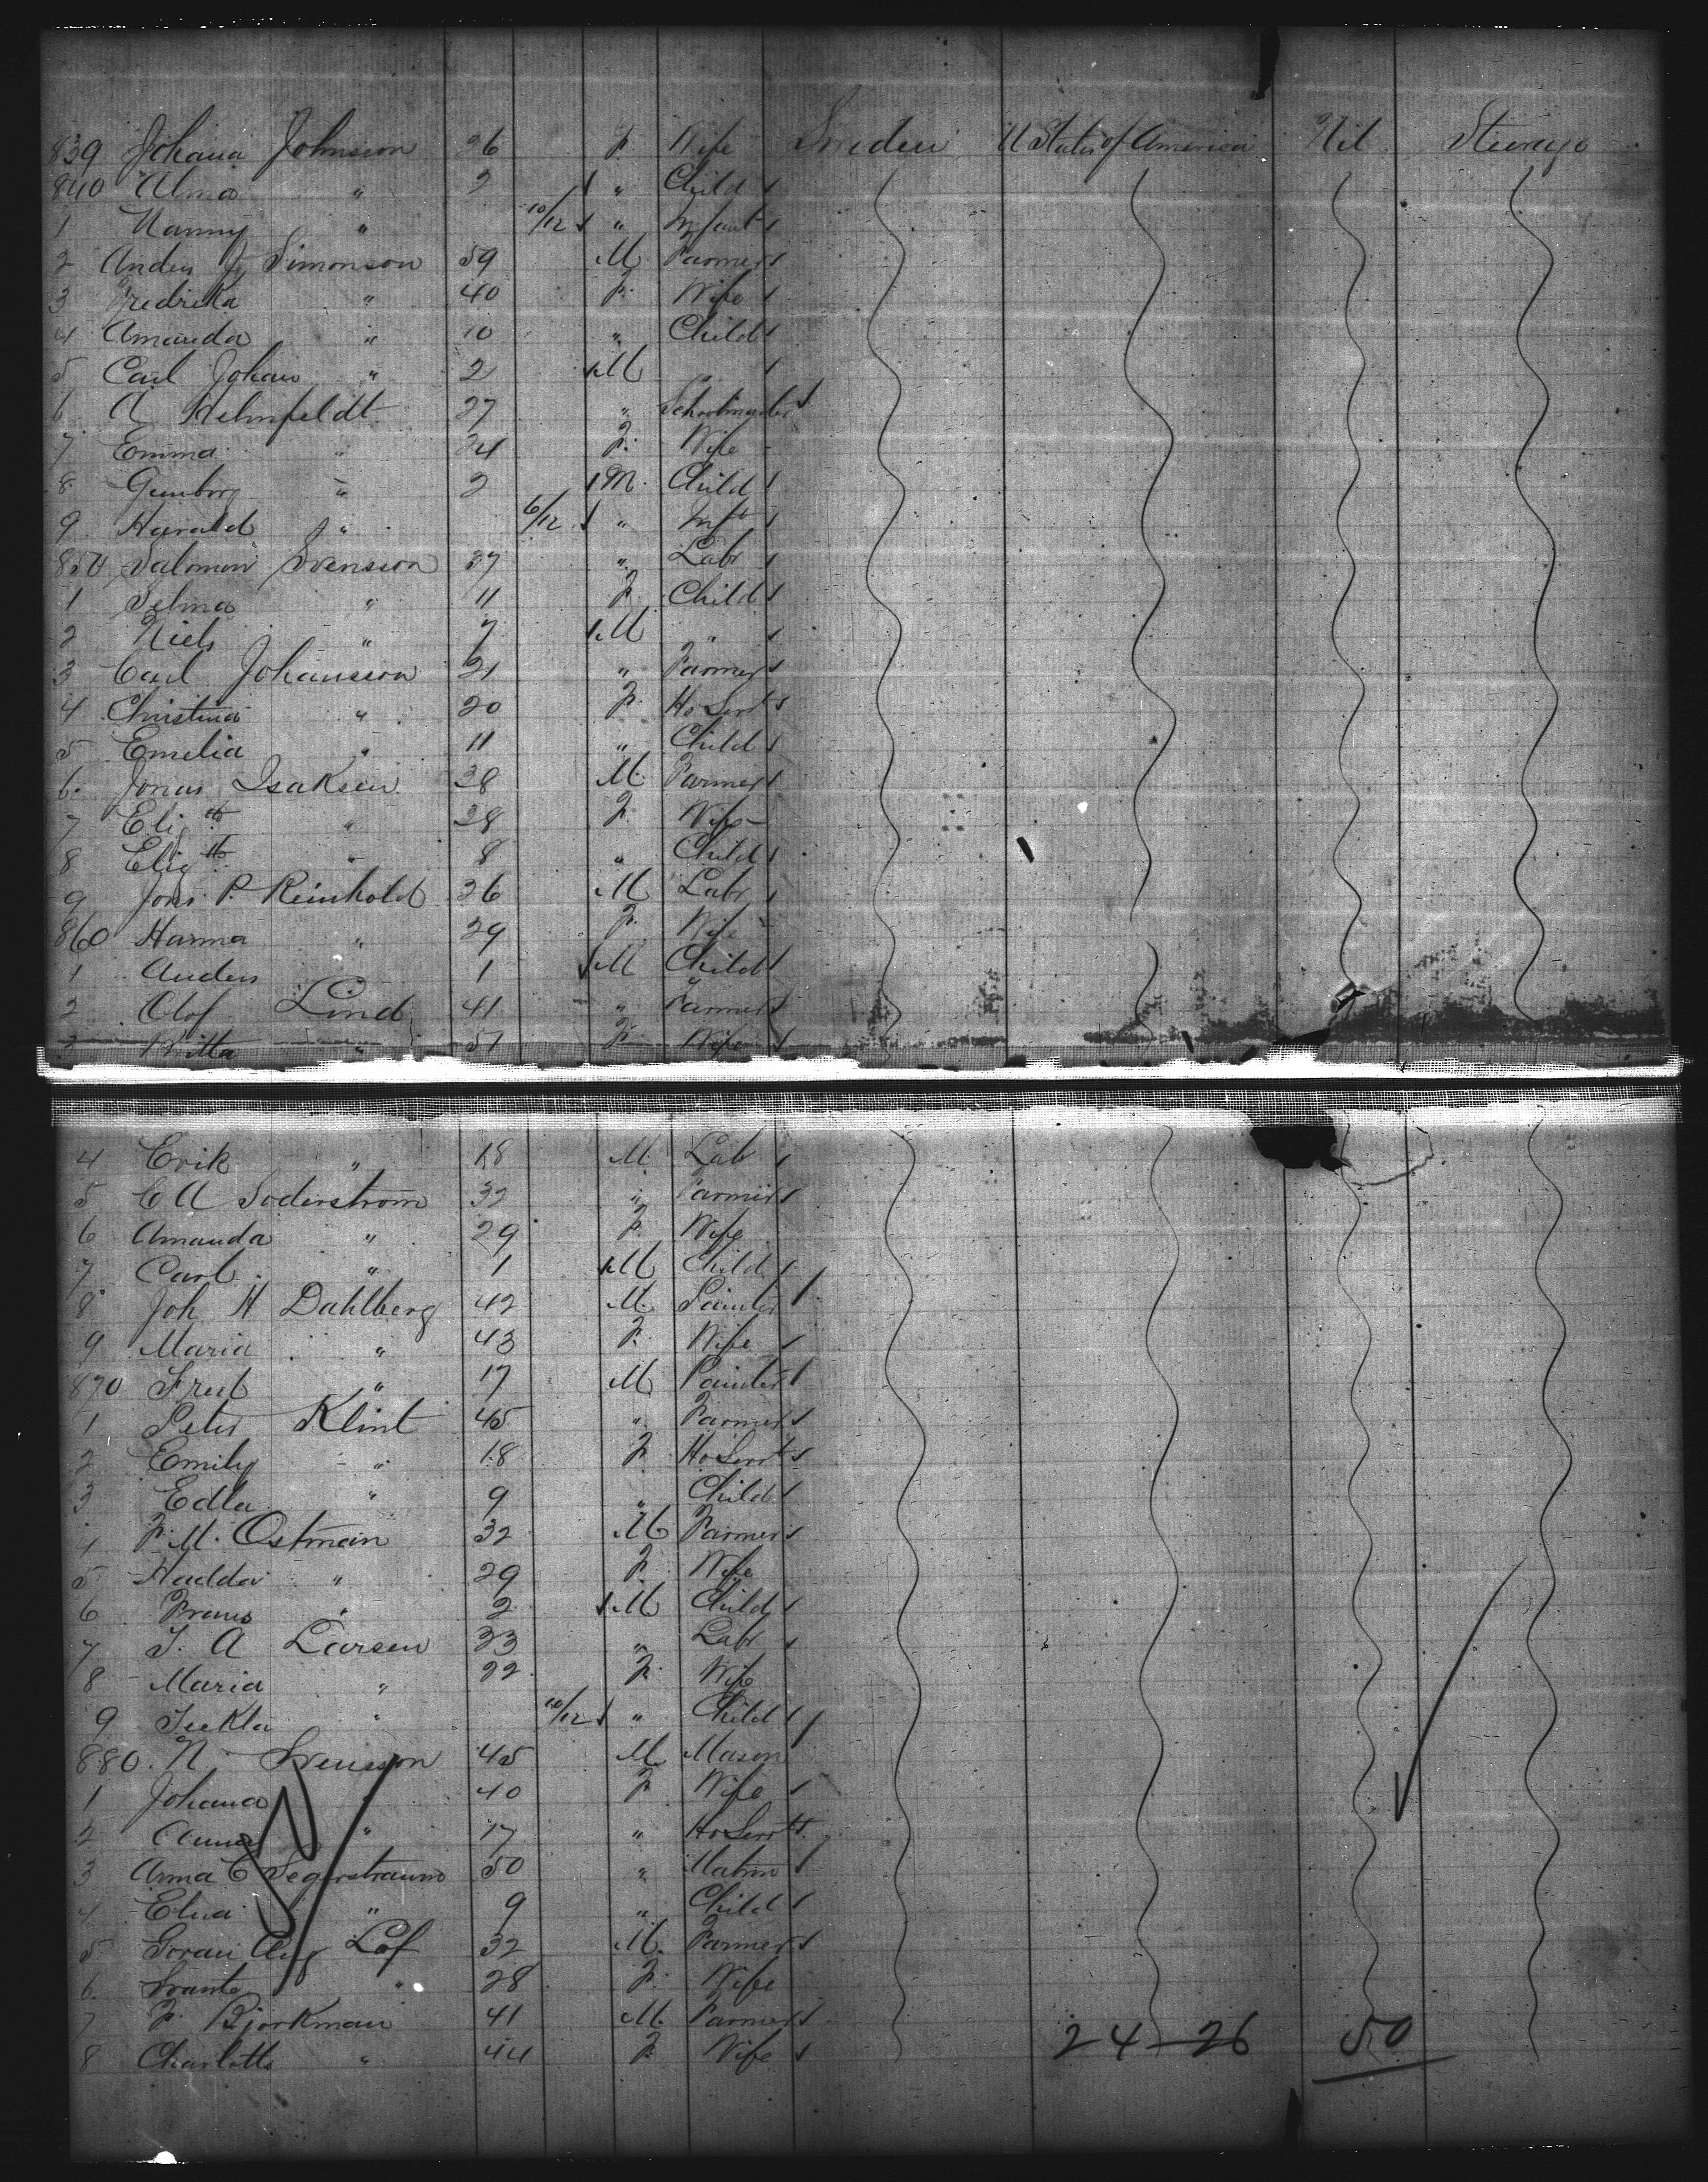 839 Johana Johnson 26 F. Wife Sweden U States of America Nil Steerage
840 Alma " 2 " Child
1 Nanny " 10/12 " Infant
2 Anders Simonson 59 M Farmer
3 Fredrika " 40 F. Wife
4 Amanda " 10 " Child
5 Carl Johan " 2 M
6 A Helmfeldt 27 " Schoolmaster
7 Emma " 24 F. Wife
8 Gunborg " 2 M. Child
9 Harald " 6/12 " Inft
850 Salomon Svensson 37 " Labr
1 Selma " 11 F. Child
2 Niels " 7 M "
3 Carl Johansson 21 " Farmer
4 Christina " 20 F. Ho Servt
5 Emelia " 11 " Child
6. Jonas Isaksen 38 M. Farmer
7 Eliz th " 38 F. Wife
8 Eliz th " 8 " Child
9 Jons P. Reinhold 26 M Labr
860 Hanna " 29 F. Wife
1 Anders 1 M Child
2 Olof Lind 41 " Farmer
3 Britta " 51 F. Wife
4 Erik " 18 M. Labr
5 C A Soderstrom 32 " Farmer
6 Amanda " 29 F. Wife
7 Carl " 1 M Child
8 Joh H Dahlberg 42 M. Painter
9 Maria " 43 F. Wife
870 " 17 M Painter
1 Peter Klint 45 " Farmer
2 Emily " 18 F Ho Servt
3 Edla " 9 " Child
4 F. M. Ostman 32 M Farmer
5 Hadda " 29 F. Wife
6 Frans " 2 M Child
7 J. A Larsen 23 " Labr
8 Maria " 22 F. Wife
9 Teckla " 10/12 " Child
880. N. Svensson 45 M Mason
1 Johana " 40 F Wife
2 Anna " 17 " Ho Servt
3 Anna C Segerstraum 50 " Matron
4 " 9 " Child
5 Goran Aug Lof 32 M. Farmer
6. " 28 F. Wife
7 F. Bjorkman 41 M. Farmer
8 Charlotte " 44 F. Wife
24 - 26 50